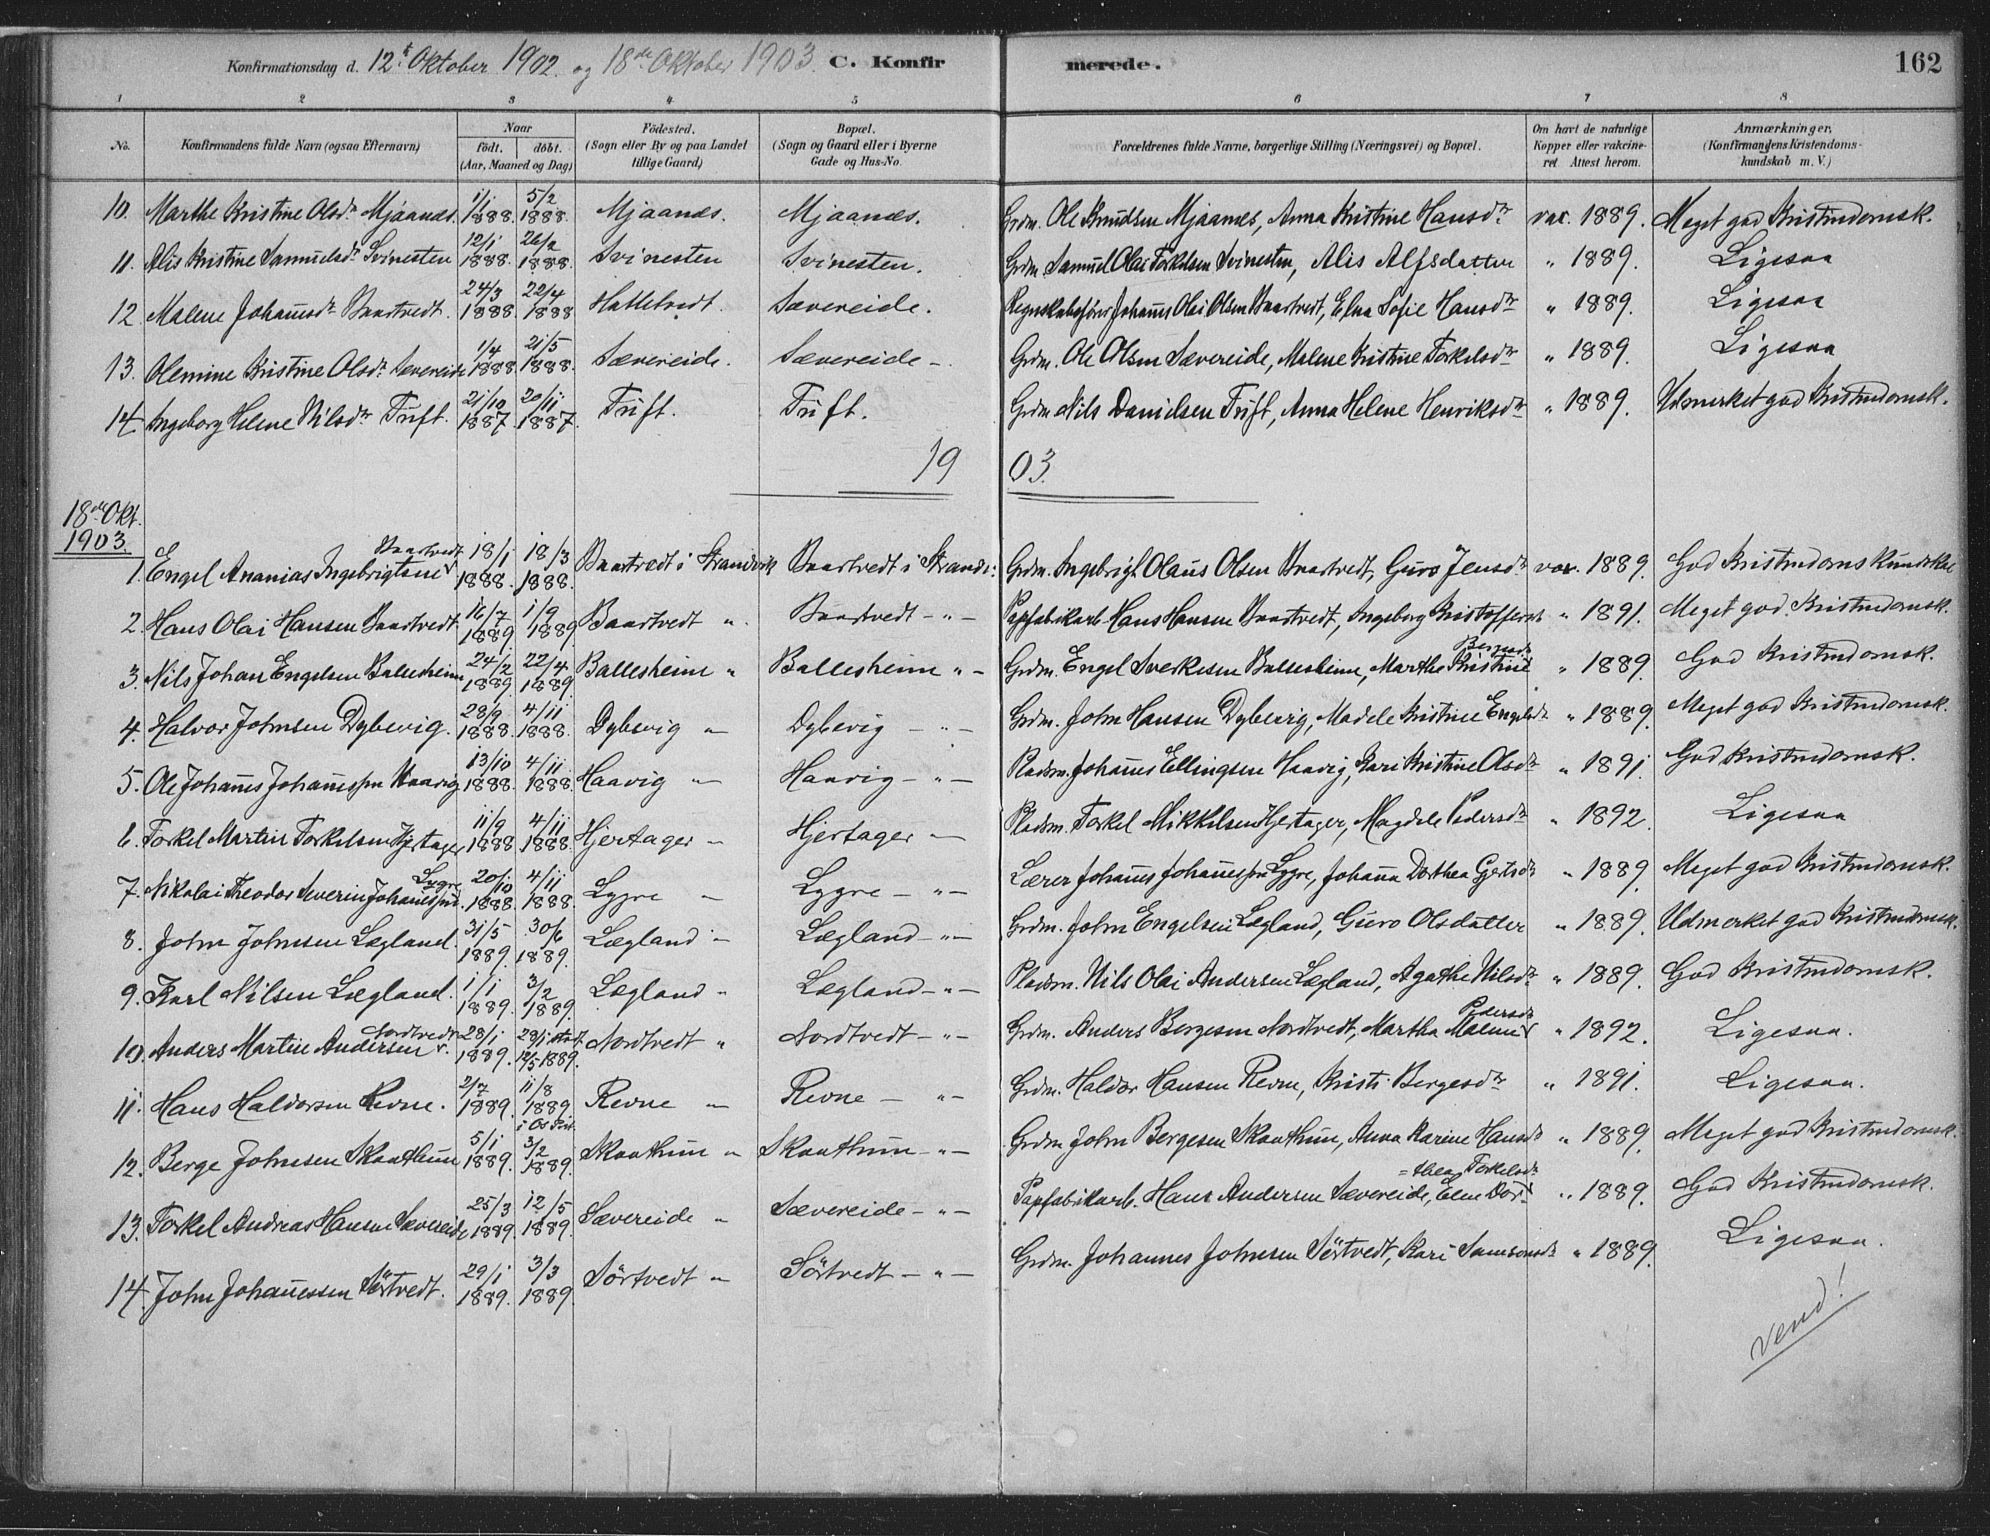 Konfirmationsdag d. 12t Oktober 1902. og 18de Oktober 1903. C. Konfirmerede. 162
1 2 3 4 5 6 7 8
No. Konfirmandens fulde Navn (ogsaa Efternavn) Naar født. døbt. (Aar, Maaned og Dag) Födested. (Sogn eller By og paa Landet tillige Gaard) Bopæl. (Sogn og Gaard eller i Byerne Gade og Hus-No. Forældrenes fulde Navne, borgerlige Stilling (Næringsvei) og Bopæl. Om havt de naturlige Kopper eller vakcineret. Attest herom. Anmærkninger. (Konfirmandens Kristendomskundskab m. V.)
10. Marthe Kristine Olsdr Mjaanes. 1/1 1888. 5/2 1888. Mjaanes. Mjaanes. Grdm. Ole Knudsen Mjaanes, Anna Kristine Hansdtr vac. 1889. Meget god Kristendomsk.
11. Alis Kristine Samuelsdr Svinesten 12/1 1888. 26/2 1888. Svinesten Svinesten. Grdm. Samuel Olai Torkelsen Svinesten, Alis Alfsdatter " 1889. Ligesaa
12 Malene Johannesdr Baartvedt. 24/3 1888. 22/4 1888 Hatletvedt. Sævereide. Regnskabsfører Johannes Olai Olsen Baartvedt, Elna Sofie Hansdtr " 1889. Ligesaa
13. Olemine Kristine Olsdr Sævereide 1/4 1888 21/5 1888. Sævereide. Sævereide –. Grdm. Ole Olsen Sævereide, Malene Kristine Torkelsdtr " 1889. Ligesaa
14. Ingeborg Helene Nilsdtr Tuft. 21/10 1887. 20/11 1887. Tuft. Tuft. Grdm. Nils Danielsen Tuft, Anna Helene Henriksdtr " 1889. Udmerket god Kristendomsk.
1903.
18de Okt. 1903.
1. Engel Ananias Ingebrigtsen Baartvedt 18/1 1888. 18/3 1888. Baartvedt i Strandvik Baartvedt i Strandv: Grdm. Ingebrigt Olaus Olsen Baartvedt, Guro Jensdtr vac. 1889. God Kristendomskundskab
2. Hans Olai Hansen Baartvedt 16/7 1889 1/9 1889 Baartvedt ". Baartvedt – " – Papfabikarb. Hans Hansen Baartvedt, Ingeborg Kristoffersdt " 1891. Meget god Kristendomsk.
3. Nils Johan Engelsen Ballesheim 24/2 1889. 22/4 1889. Ballesheim " Ballesheim " – Grdm. Engel Sverkesen Ballesheim, Marthe Kristine " 1889. God Kristendomsk.
4. Halvor Johnsen Dybevig. 28/9 1888. 4/11 1888. Dybevig " Dybevig – " – Grdm. John Hansen Dybevig, Madele Kristine Engelsdt " 1889. Meget god Kristendomsk.
5. Ole Johannes Johannessen Haavig 13/10 1888. 4/11 1888. Haavig " Haavig – " – Pladsm. Johannes Ellingsen Haavig, Kari Kristine Olsdtr " 1891. God Kristendomsk.
6. Torkel Martin Torkelsen Hjertager 11/9 1888 4/11 1888. Hjertager " Hjertager – Pladsm. Torkel Mikkelsen Hjertager, Magdele Pedersdtr " 1892. Ligesaa
7. Nikolai Theodor Severin Johannessen Lygre 20/10 1888. 4/11 1888. Lygre " Lygre – " – Lærer Johannes Johannessen Lygre, Johanna Dorthea Gjertsdtr " 1889. Meget god Kristendomsk.
8. John Johnsen Lægland. 31/5 1889. 30/6 1889. Lægland " Lægland – " – Grdm. John Engelsen Lægland, Guro Olsdatter " 1889. Udmerket god Kristendomsk.
9. Karl Nilsen Lægland. 1/1 1889. 3/2 1889. Lægland " Lægland – " – Pladsm. Nils Olai Andersen Lægland, Agathe Nilsdtr " 1889. God Kristendomsk.
10. Anders Martin Andersen Nordtvedt 28/1 1889. 29/1 stadf. 12/5 1889. Nordtvedt " Nordtvedt – " – Grdm. Anders Bergesen Nordtvedt, Martha Malene Pedersdt " 1892. Ligesaa.
11. Hans Haldorsen Revne. 2/7 1889. 11/8 1889. i Os Præst. Revne " Revne – " – Grdm. Haldor Hansen Revne, Kristi Bergesdtr " 1891. Ligesaa.
12. Berge Johnsen Skaathun 5/1 1889. 3/2 1889. Skaathun " Skaathun – " – Grdm John Bergesen Skaathun, Anna Karine Hansdt " 1889. Meget god Kristendomsk.
13. Torkel Andreas Hansen Sævereide 25/3 1889. 12/5 1889. Sævereide " Sævereide – " – Papfabikarb. Hans Andersen Sævereide, Elen Dorthea Torkelsdtr " 1889. God Kristendomsk.
14. John Johannessen Sörtvedt. 29/1 1889. 3/3 1889. Sörtvedt " Sörtvedt – " – Grdm. Johannes Johnsen Sörtvedt, Kari Samsonsdt " 1889. Ligesaa.
vend!